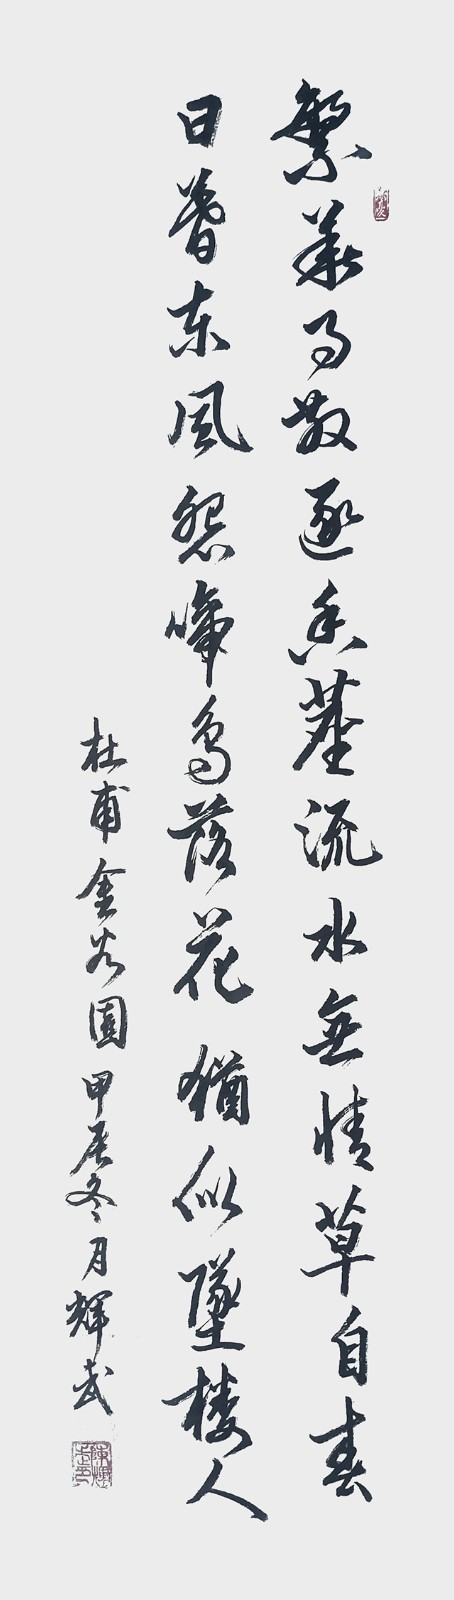 繁華事散逐香塵流水無情草自春
日暮东風怨啼鳥落花猶似墜楼人
杜甫金谷園甲辰冬月輝武
陳輝武印